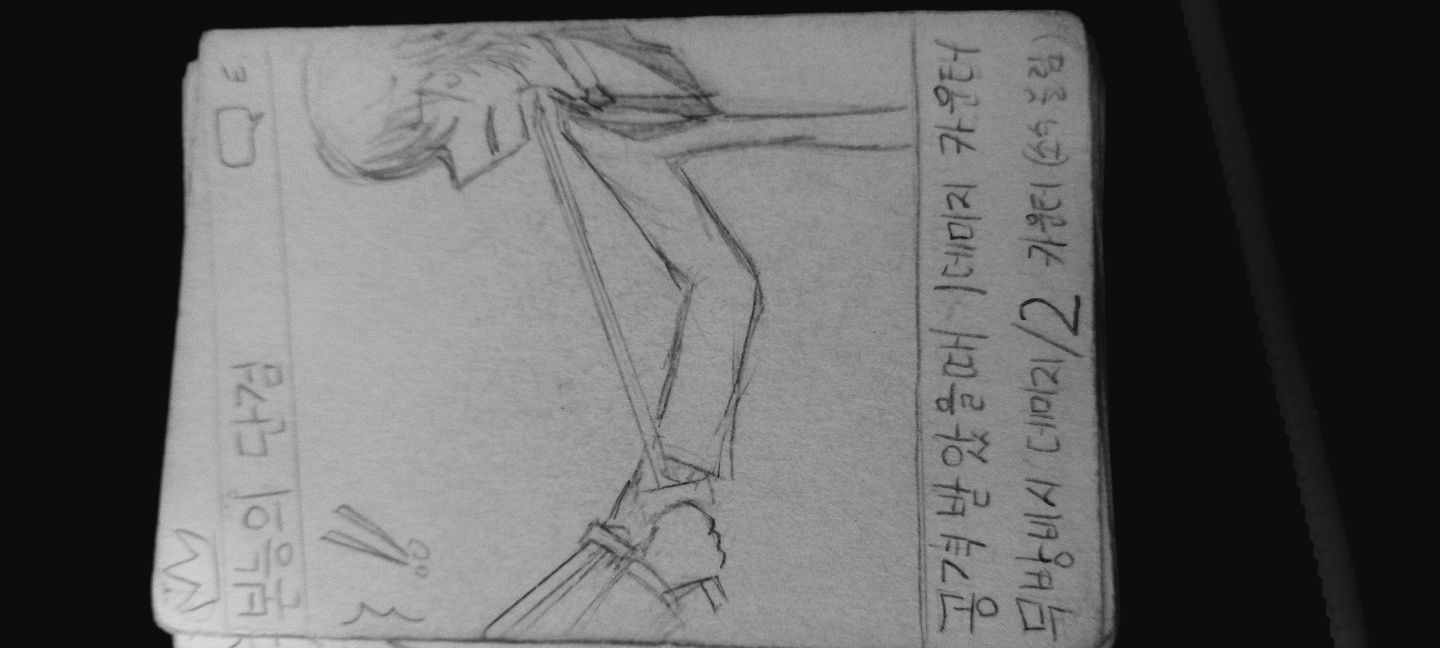 본능의 단검
!!
공격 받았을때 1데미지 카운터
무방비시 데미지/2 카운터 (소숫올림)